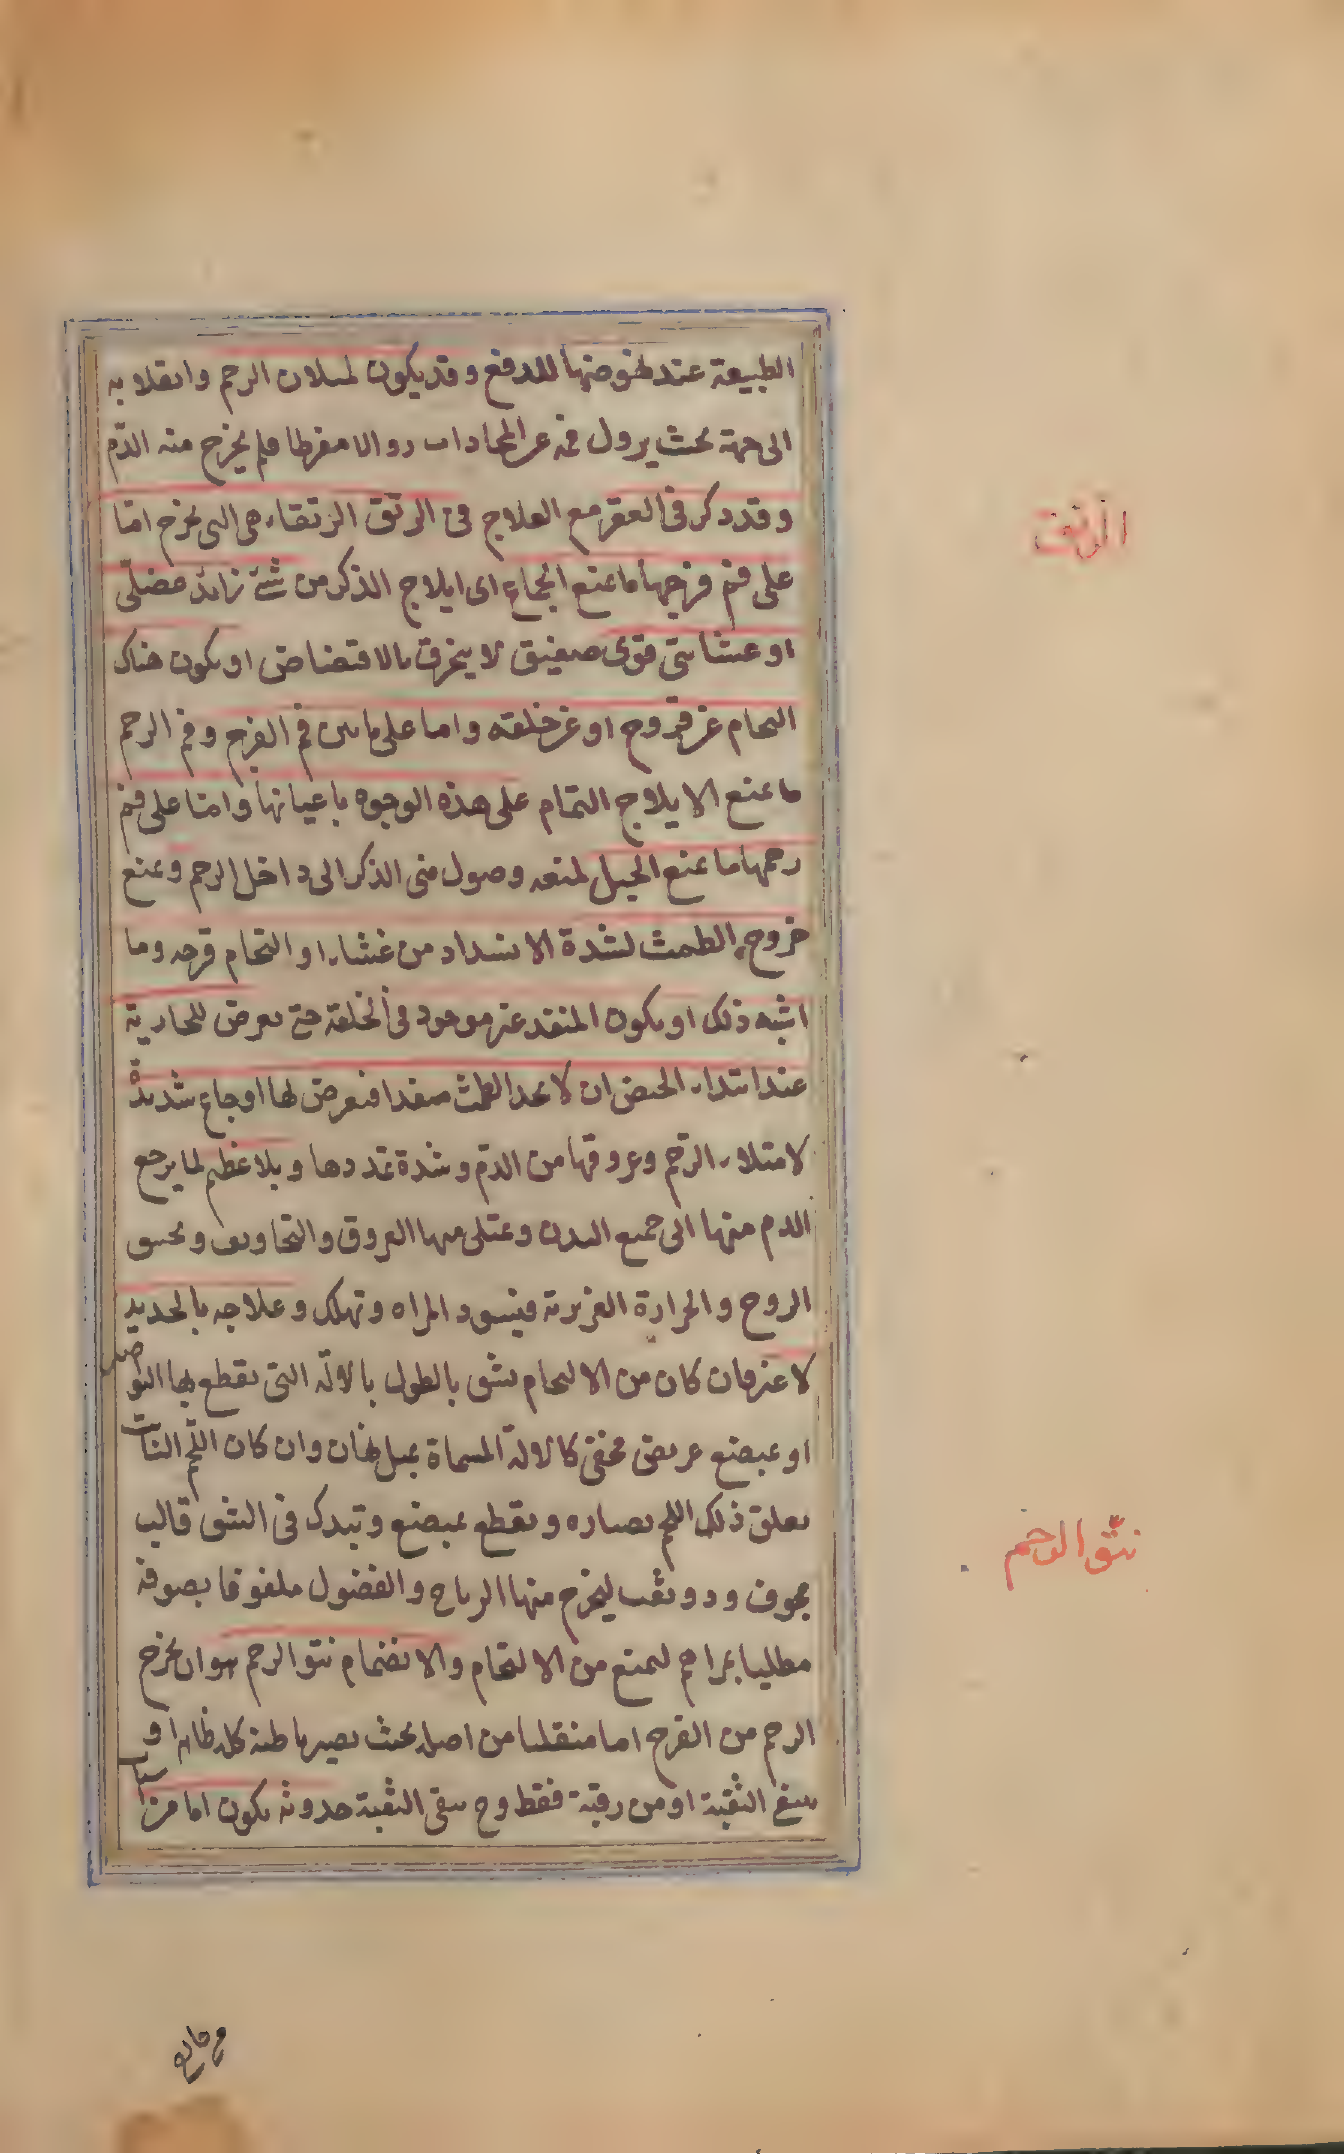 الطبيعة عند نهوضها للدفع وقد يكون لميلان الرحم وانقلابه
الى جهة بحيث يزول فمه عن المحاذات زوالا مفرطا فلم يخرج منه الدّم
وقد ذكر فى العقر مع العلاج فى الرتق الرتقاء هى التى يخرج امّا
على فم فرجها ما يمنع الجماع اى ايلاج الذكر من شئ زائد عضلّى
او غشائى قوى صفيق لا ينخرق بالاقتضاض او يكون هناك
التحام عن قروح او عن خلقته واما على ما بين فم الفرج وفم الرحم
ما يمنع الايلاج التمام على هذه الوجوه باعيانها وامّا على فم
رحمها ما يمنع الحبل لمنعه وصول منى الذكر الى داخل الرحم ويمنع
خروج الطمث لشدة الانسداد من غشاء او التحام قرحه وما
اشبه ذلك او يكون المنفذ غير موجود فى الخلقة حتى يعرض للجارية
عند ابتداء الحيض ان لا يجد الطمث منفذا فيعرض لها اوجاع شديدة
لامتلاء الرّحم وعروقها من الدّم وشدة تمددها وبلاء عظيم لما يرجع
الدم منها الى جميع البدن ويمتلى منها العروق والتجاويف ويختنق
الروح والحرارة الغريزية فيسود المراه وتهلك وعلاجه بالحديد
لا غير فان كان من الالتحام يشق بالطول بالآلة التى يقطع بها البواصير
او بمبضع عريض مخفى كالالة المسماة بمبل لهان وان كان اللّحم النابت
يعلق ذلك اللحم بصناره ويقطع بمبضع ويترك فى الشق قالب
مجوف وذو ثقب ليخرج منها الرياح والفضول ملفوفا بصوفة
مطليا بمراهم ليمنع من الالتحام والانضمام نتو الرحم هو ان يخرج
الرحم من الفرج اما منقلبا من اصله بحيث يصير باطنه كله ظاهرا و
ينتفى الثقبة او من رقبته فقط وح يبقى الثقبة حدوثه يكون اما من اسباب
الرتق
نتّو الرحم